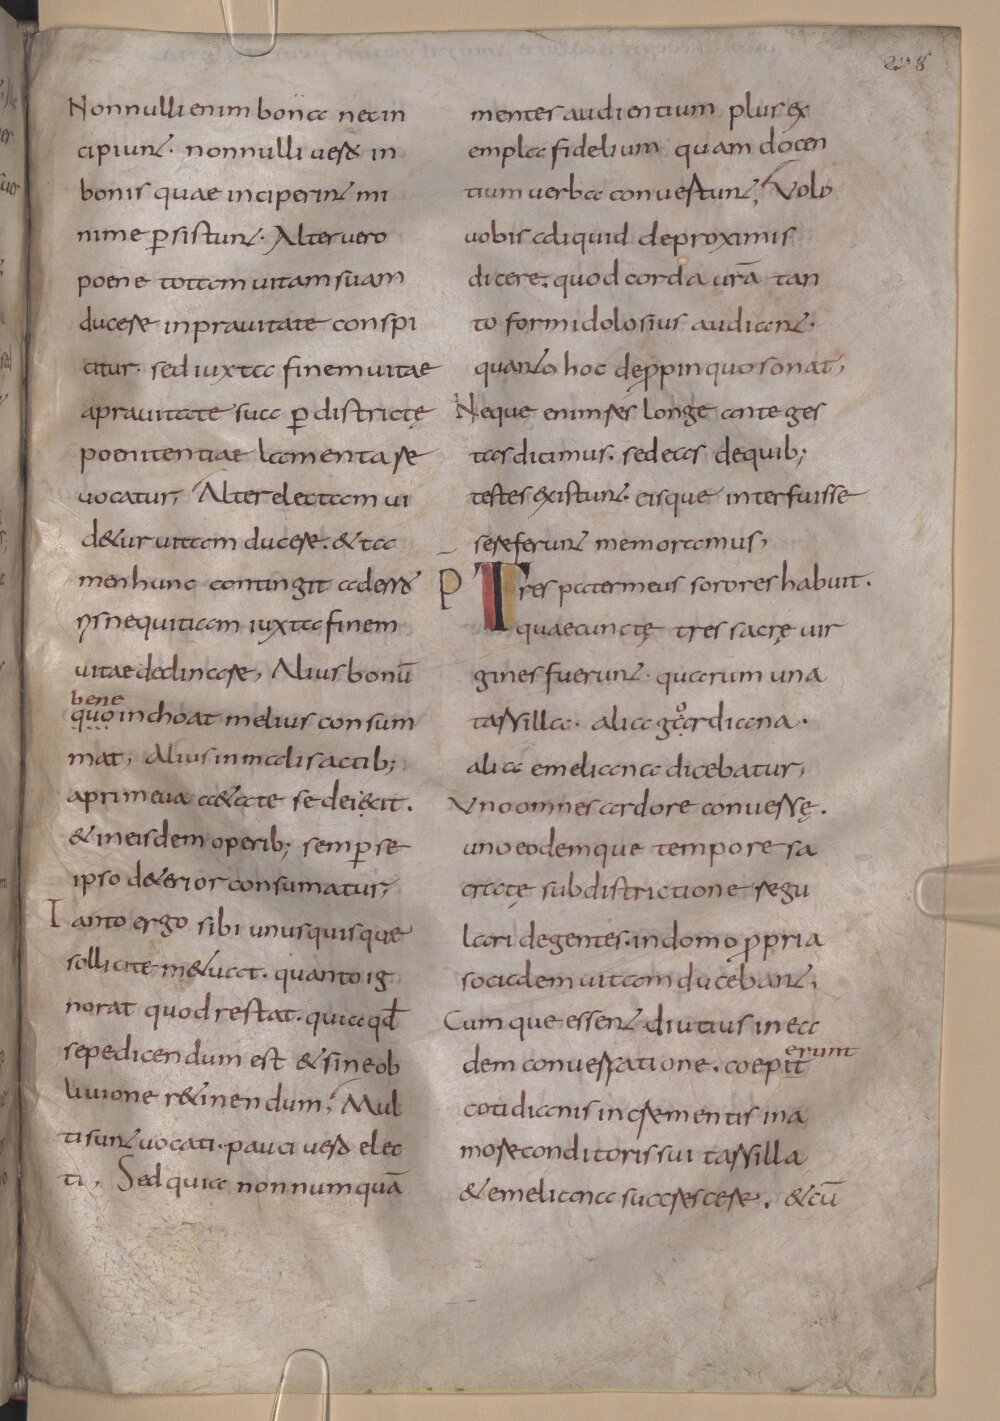 298
Nonnulli enim bona nec in
cipiunt. nonnulli uero in
bonis quae inciperint mi
nime p̱sistunt. Alter uero
poene totam uitam suam
ducere in prauitate conspi
citur. sed iuxta finem uitae
a prauitate sua p̱ districtę
poenitentiae lamenta re
uocatur, Alter electam ui
detur uitam ducere. & ta
men hunc contingit ad erro
ris nequitiam iuxta finem
uitae declinare, Alius bonū
bene
quo inchoat melius consum
mat, Alius in malis actib;
a primeua aetate se deiecit.
& in eisdem operib; semp̱ se
ipso deterior consumatur,
Tanto ergo sibi unusquisque
sollicite metuat. quanto ig
norat quod restat. quia qđ
sepe dicendum est & sine ob
liuione retinendum, Mul
ti sunt uocati. pauci uero elec
ti, Sed quia nonnumquā
mentes audientium plus ex
empla fidelium quam docen
tium uerba conuertunt, Volo
uobis aliquid de proximis
dicere. quod corda urā tan
to formidolosius audiant.
quanto hoc de ꝓpinquo sonat,
Neque enim res longe ante ges
tas dicimus. sed eas de quib;
testes existunt. eisque interfuisse
se referunt memoramus,
P Tres pater meus sorores habuit.
quae cunctę tres sacrę uir
gines fuerunt. quarum una
tassilla. alia gordiana.
alia emeliana dicebatur,
Vno omnes ardore conuersę.
uno eodemque tempore sa
cratę sub districtione regu
lari degentes. in domo ꝓpria
socialem uitam ducebant,
Cumque essent diutius in ea
erunt
dem conuersatione. coepit
cotidianis incrementis in a
more conditoris sui tassilla
& emeliana succrescere. & cū